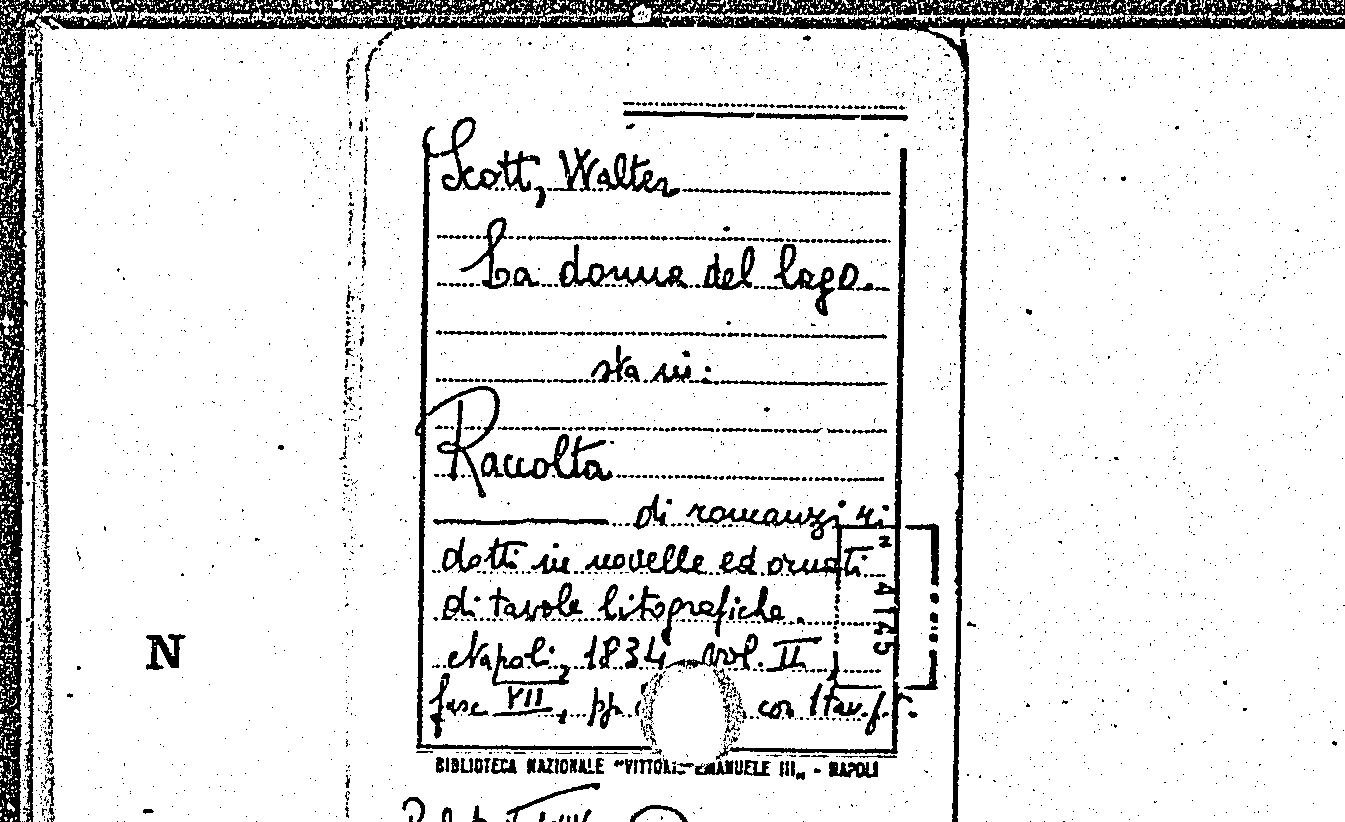 Scott, Walter
La donna del lago.
sta in:
Raccolta
di romanzi ri
dotti in novelle ed ornati
di tavole litografiche.
Napoli, 1834, vol. II
fasc VII, pp. con 1 tav. f.t.
N 4145
BIBLIOTECA NAZIONALE "VITTORIO EMANUELE III„ - NAPOLI
N